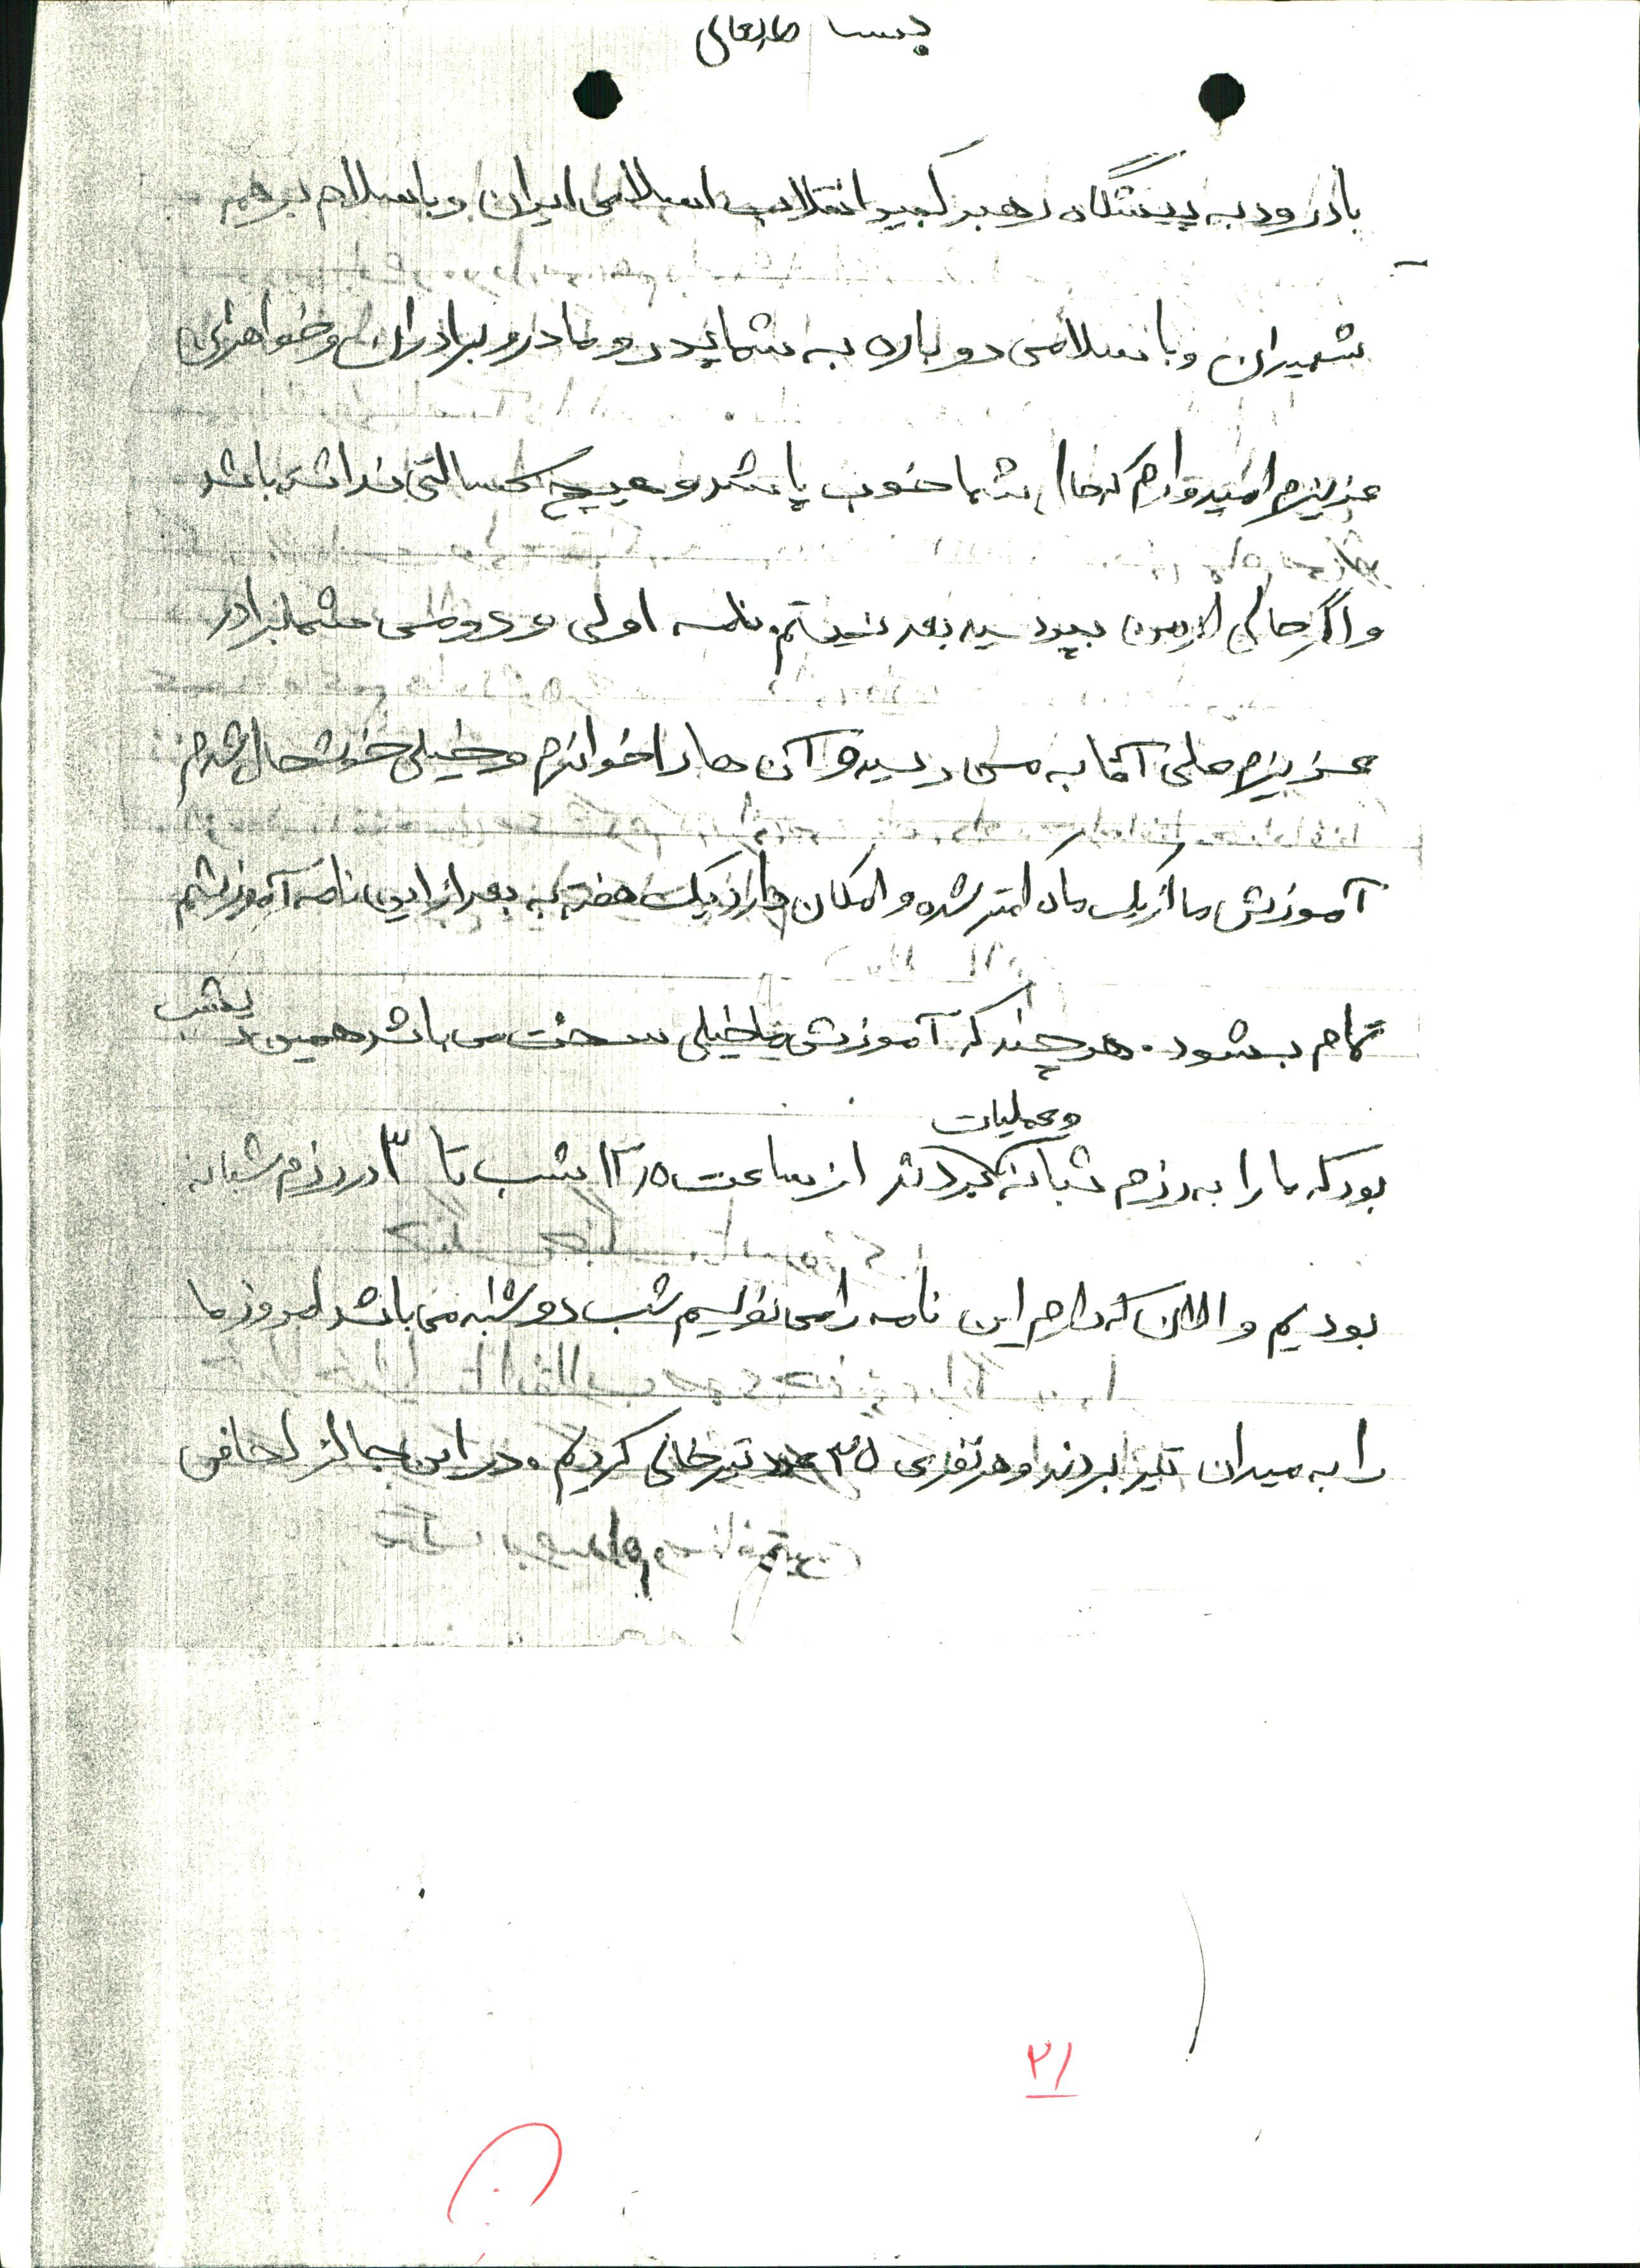 بسمه تعالی
بادرود به پیشگاه رهبر کبیر انقلاب اسلامی ایران و با سلام بر همه
شهیدان و با سلامی دوباره به شما پدر و مادر و برادران و خواهران
عزیزم امیدوارم که حال شما خوب باشد و هیچ کسالتی نداشته باشد
و اگر حالی از من بپرسید بد نیستم. نامه اولی و دومی شما برادر
عزیزم علی آقا به من رسید و آن ها را خواندم و خیلی خوشحال شدم
آموزش ما از یک ماه کمتر شده و امکان دارد یک هفته به بعد از این نامه آموزشم
تمام بشود. هر چند که آموزش ما خیلی سخت می باشد همین دیشب
بود که ما را به رزم شبانه و عملیات بردند از ساعت ۱۲/۵ شب تا ۳ در رزم شبانه
بودیم و الان که دارم این نامه را می نویسم شب دوشنبه می باشد امروز ما
را به میدان تیر بردند و هر نفری ۳۵ عدد تیر خالی کردیم. در این جا از لحاظ
۲۱